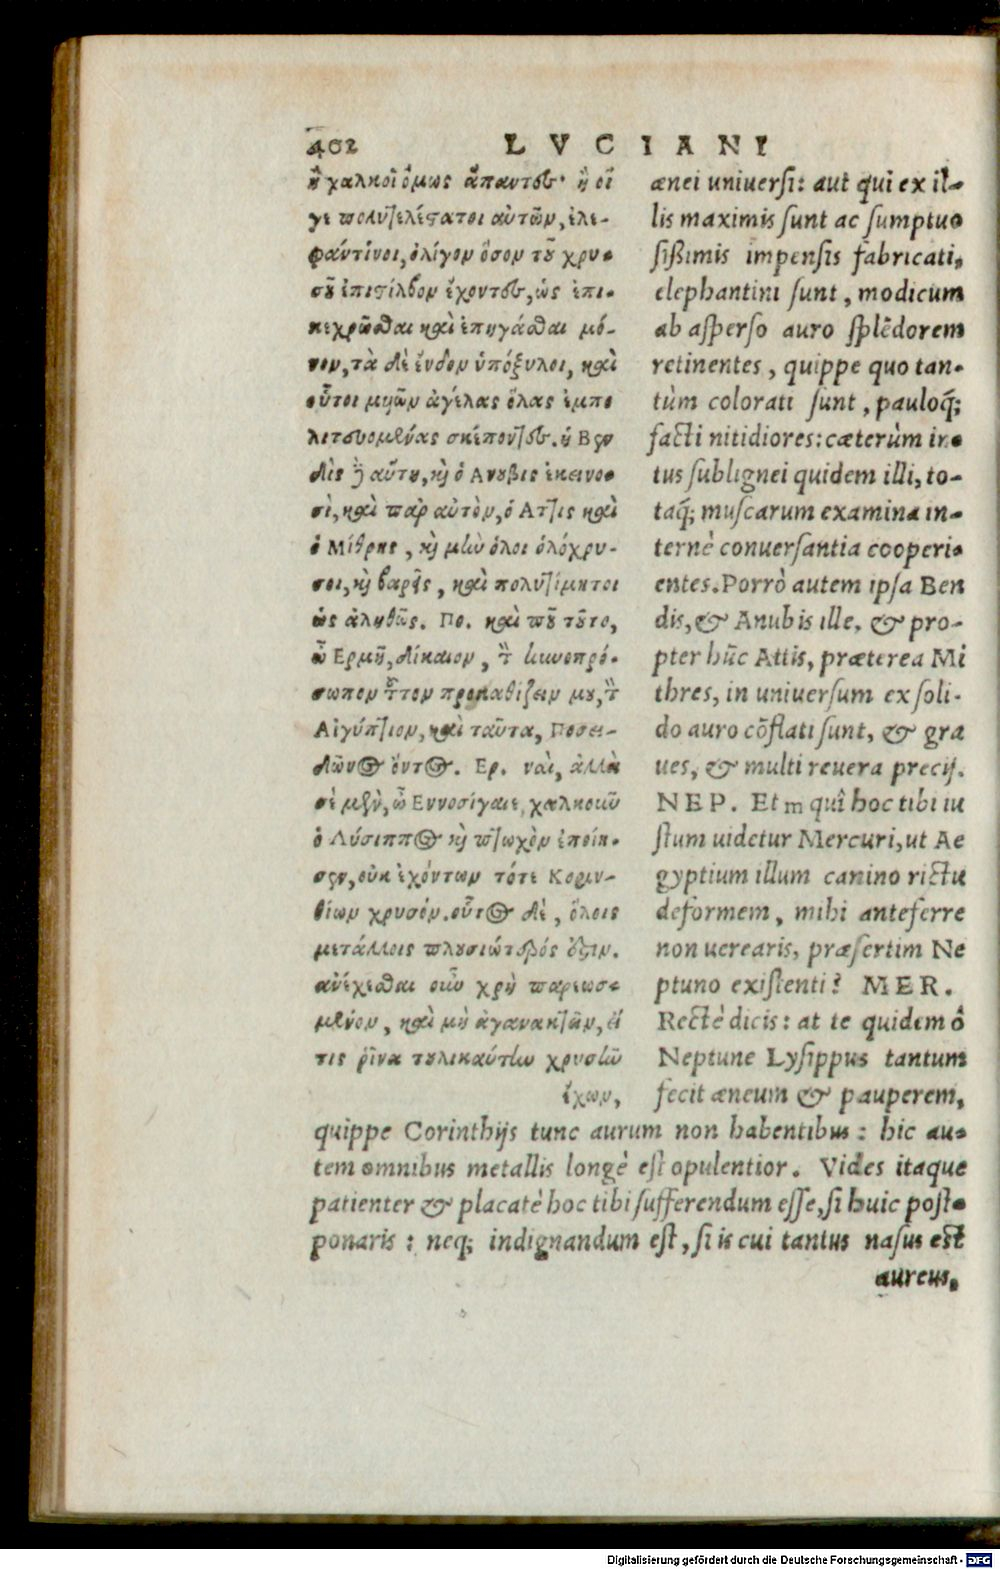 402 LVCIANI
ἢ χαλκοῖ ὅμως ἅπαντες· ἢ οἵ
γε πολυτελέστατοι αὐτῶν, ἐλε-
φάντινοι, ὀλίγον ὅσον τοῦ χρυ-
σοῦ ἐπιστίλβον ἔχοντες, ὡς ἐπι-
κεχρῶσθαι καὶ ἐπηυγάσθαι μό-
νον, τὰ δὲ ἔνδον ὑπόξυλοι, καὶ
οὗτοι μυῶν ἀγέλας ὅλας ἐμπο
λιτευομένας σκέποντες. ἡ Βεν
δὶς δὲ αὕτη, καὶ ὁ Ανυβις ἐκεινο-
σὶ, καὶ παρ αὐτὸν, ὁ Αττις καὶ
ὁ Μίθρης, καὶ μὴν ὅλοι ὁλόχρυ-
σοι, καὶ βαρεῖς, καὶ πολυτίμητοι
ὡς ἀληθῶς. Πο. καὶ ποῦ τοῦτο,
ὦ Ερμῆ, δίκαιον, τὸν κυνοπρό-
σωπον τοῦτον προκαθίζειν μου, τὸν
Αἰγύπτιον, καὶ ταῦτα, Ποσει-
δῶνος ὄντος. Ερ. ναὶ, ἀλλὰ
σὲ μὲν, ὦ Εννοσίγαιε, χαλκοῦν
ὁ Λύσιππος καὶ πτωχὸν ἐποίη-
σεν, οὐκ ἐχόντων τότε Κοριν-
θίων χρυσόν. οὗτος δὲ, ὅλοις
μετάλλοις πλουσιώτερός ἐστιν.
ἀνέχεσθαι οὖν χρὴ παρεωσ-
μένον, καὶ μὴ ἀγανακτεῖν, εἴ
τις ῥῖνα τηλικαύτην χρυσῆν
ἔχων,
ænei uniuersi: aut qui ex il-
lis maximis sunt ac sumptuo
sißimis impensis fabricati,
elephantini sunt, modicum
ab asperso auro splẽdorem
retinentes, quippe quo tan-
tùm colorati sunt, pauloq́;
facti nitidiores: cæterùm in-
tus sublignei quidem illi, to-
taq́; muscarum examina in-
ternè conuersantia cooperi-
entes. Porrò autem ipsa Ben
dis, & Anubis ille, & pro-
pter hũc Attis, præterea Mi
thres, in uniuersum ex soli-
do auro cõflati sunt, & gra
ues, & multi reuera precij.
NEP. Et m quî hoc tibi iu
stum uidetur Mercuri, ut Ae
gyptium illum canino rictu
deformem, mihi anteferre
non uerearis, præsertim Ne
ptuno existenti? MER.
Rectè dicis: at te quidem ô
Neptune Lysippus tantum
fecit æneum & pauperem,
quippe Corinthijs tunc aurum non habentibus: hic au-
tem omnibus metallis longè est opulentior. Vides itaque
patienter & placatè hoc tibi sufferendum esse, si huic post-
ponaris: neq; indignandum est, si is cui tantus nasus est
aureus,
Digitalisierung gefördert durch die Deutsche Forschungsgemeinschaft - DFG